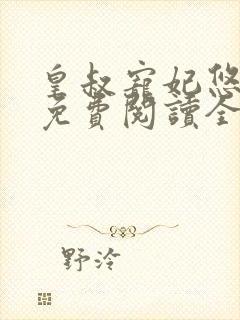 皇叔寵妃悠
免費閱讀全
野泠